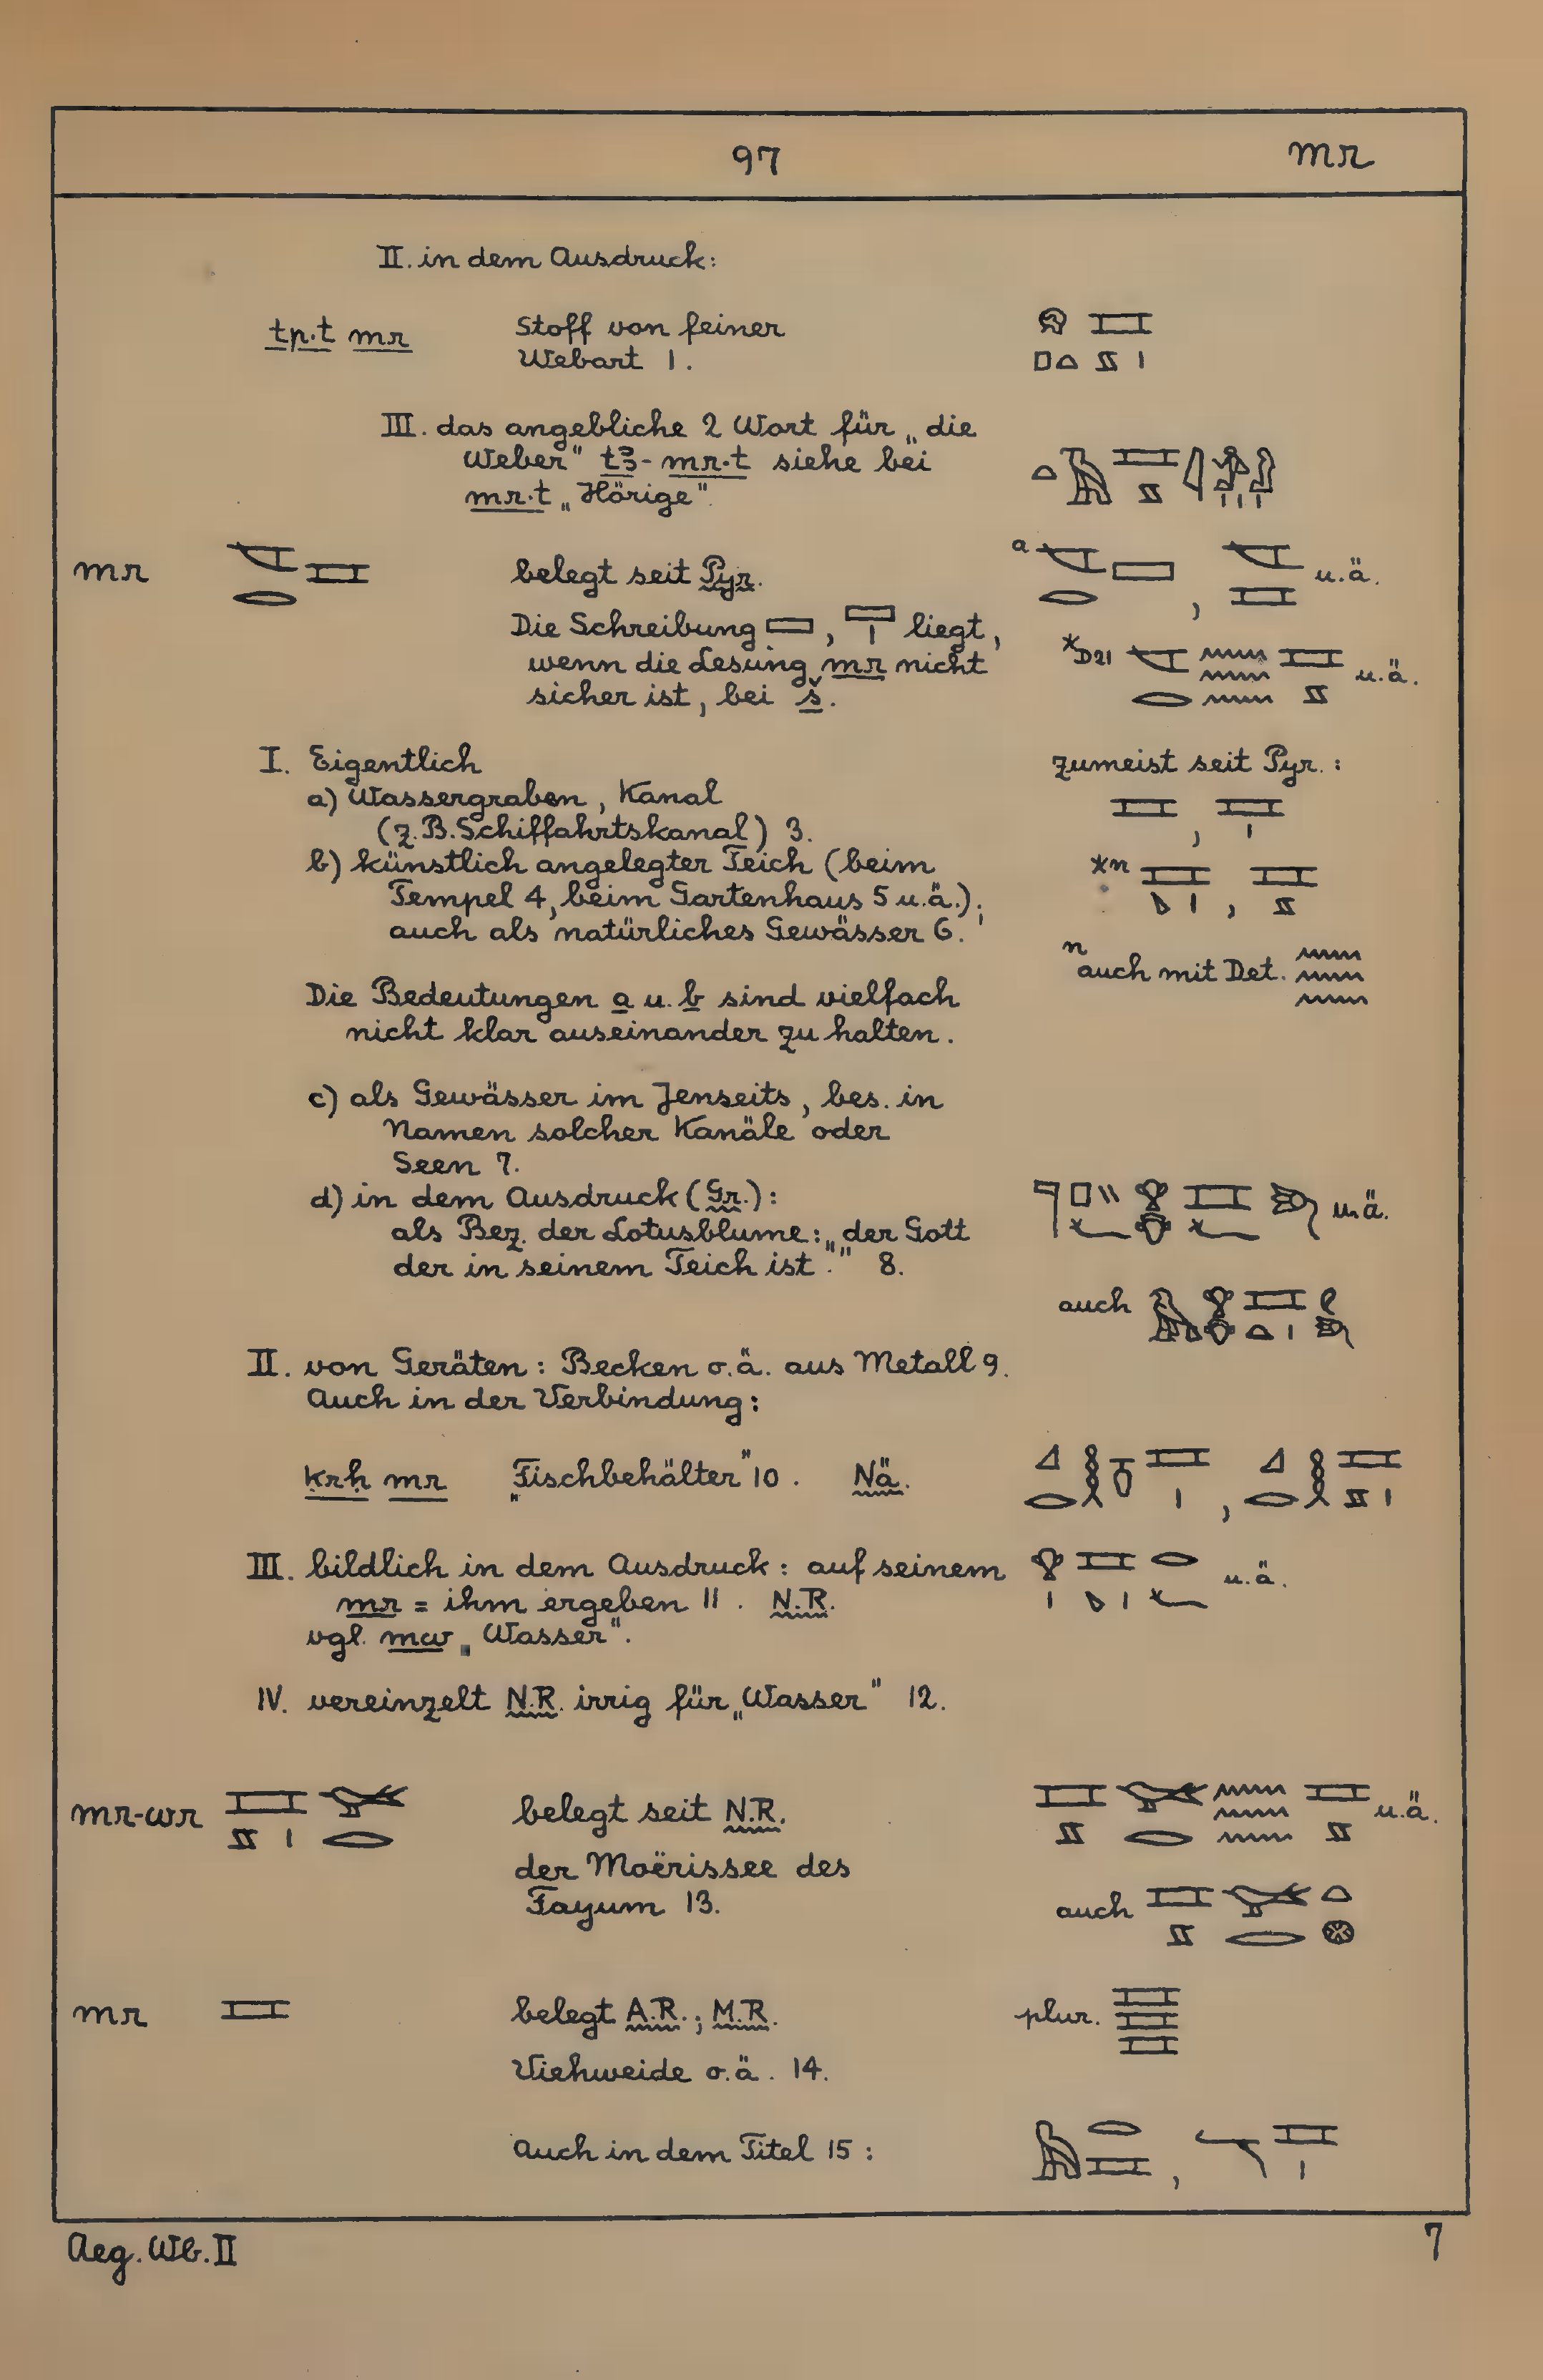 97 mr
II. in dem Ausdruck:
tp.t mr Stoff von feiner
Webart 1.
III. das angebliche 2 Wort für „die
Weber" tꜣ-mr.t siehe bei
mr.t „Hörige".
mr 𓌸𓂋𓈘 belegt seit Pyr. a 𓌸𓂋𓈙, 𓌸𓈘 u.ä.
Die Schreibung 𓈙, 𓈙𓏤 liegt,
wenn die Lesung mr nicht *D21 𓌸𓂋𓈗𓈘𓈇 u.ä.
sicher ist, bei š.
I. Eigentlich zumeist seit Pyr.:
a) Wassergraben, Kanal 𓈘, 𓈘𓏤
(z.B. Schiffahrtskanal) 3.
b) künstlich angelegter Teich (beim *n
Tempel 4, beim Gartenhaus 5 u.ä.);
auch als natürliches Gewässer 6.
n auch mit Det. 𓈗
Die Bedeutungen a u. b sind vielfach
nicht klar auseinander zu halten.
c) als Gewässer im Jenseits, bes. in
Namen solcher Kanäle oder
Seen 7.
d) in dem Ausdruck (Gr.): u.ä.
als Bez. der Lotusblume: „der Gott
der in seinem Teich ist." 8.
auch
II. von Geräten: Becken o.ä. aus Metall 9.
Auch in der Verbindung:
ḳrḥ mr „Fischbehälter" 10. Nä.
III. bildlich in dem Ausdruck: auf seinem
mr = ihm ergeben 11. N.R. u.ä.
vgl. mw „Wasser".
IV. vereinzelt N.R. irrig für „Wasser" 12.
mr-wr belegt seit N.R. u.ä.
der Moërissee des
Fayum 13.
auch
mr 𓈘 belegt A.R.; M.R. plur. 𓈘𓈘𓈘
Viehweide o.ä. 14.
Auch in dem Titel 15:
Aeg. Wb. II 7